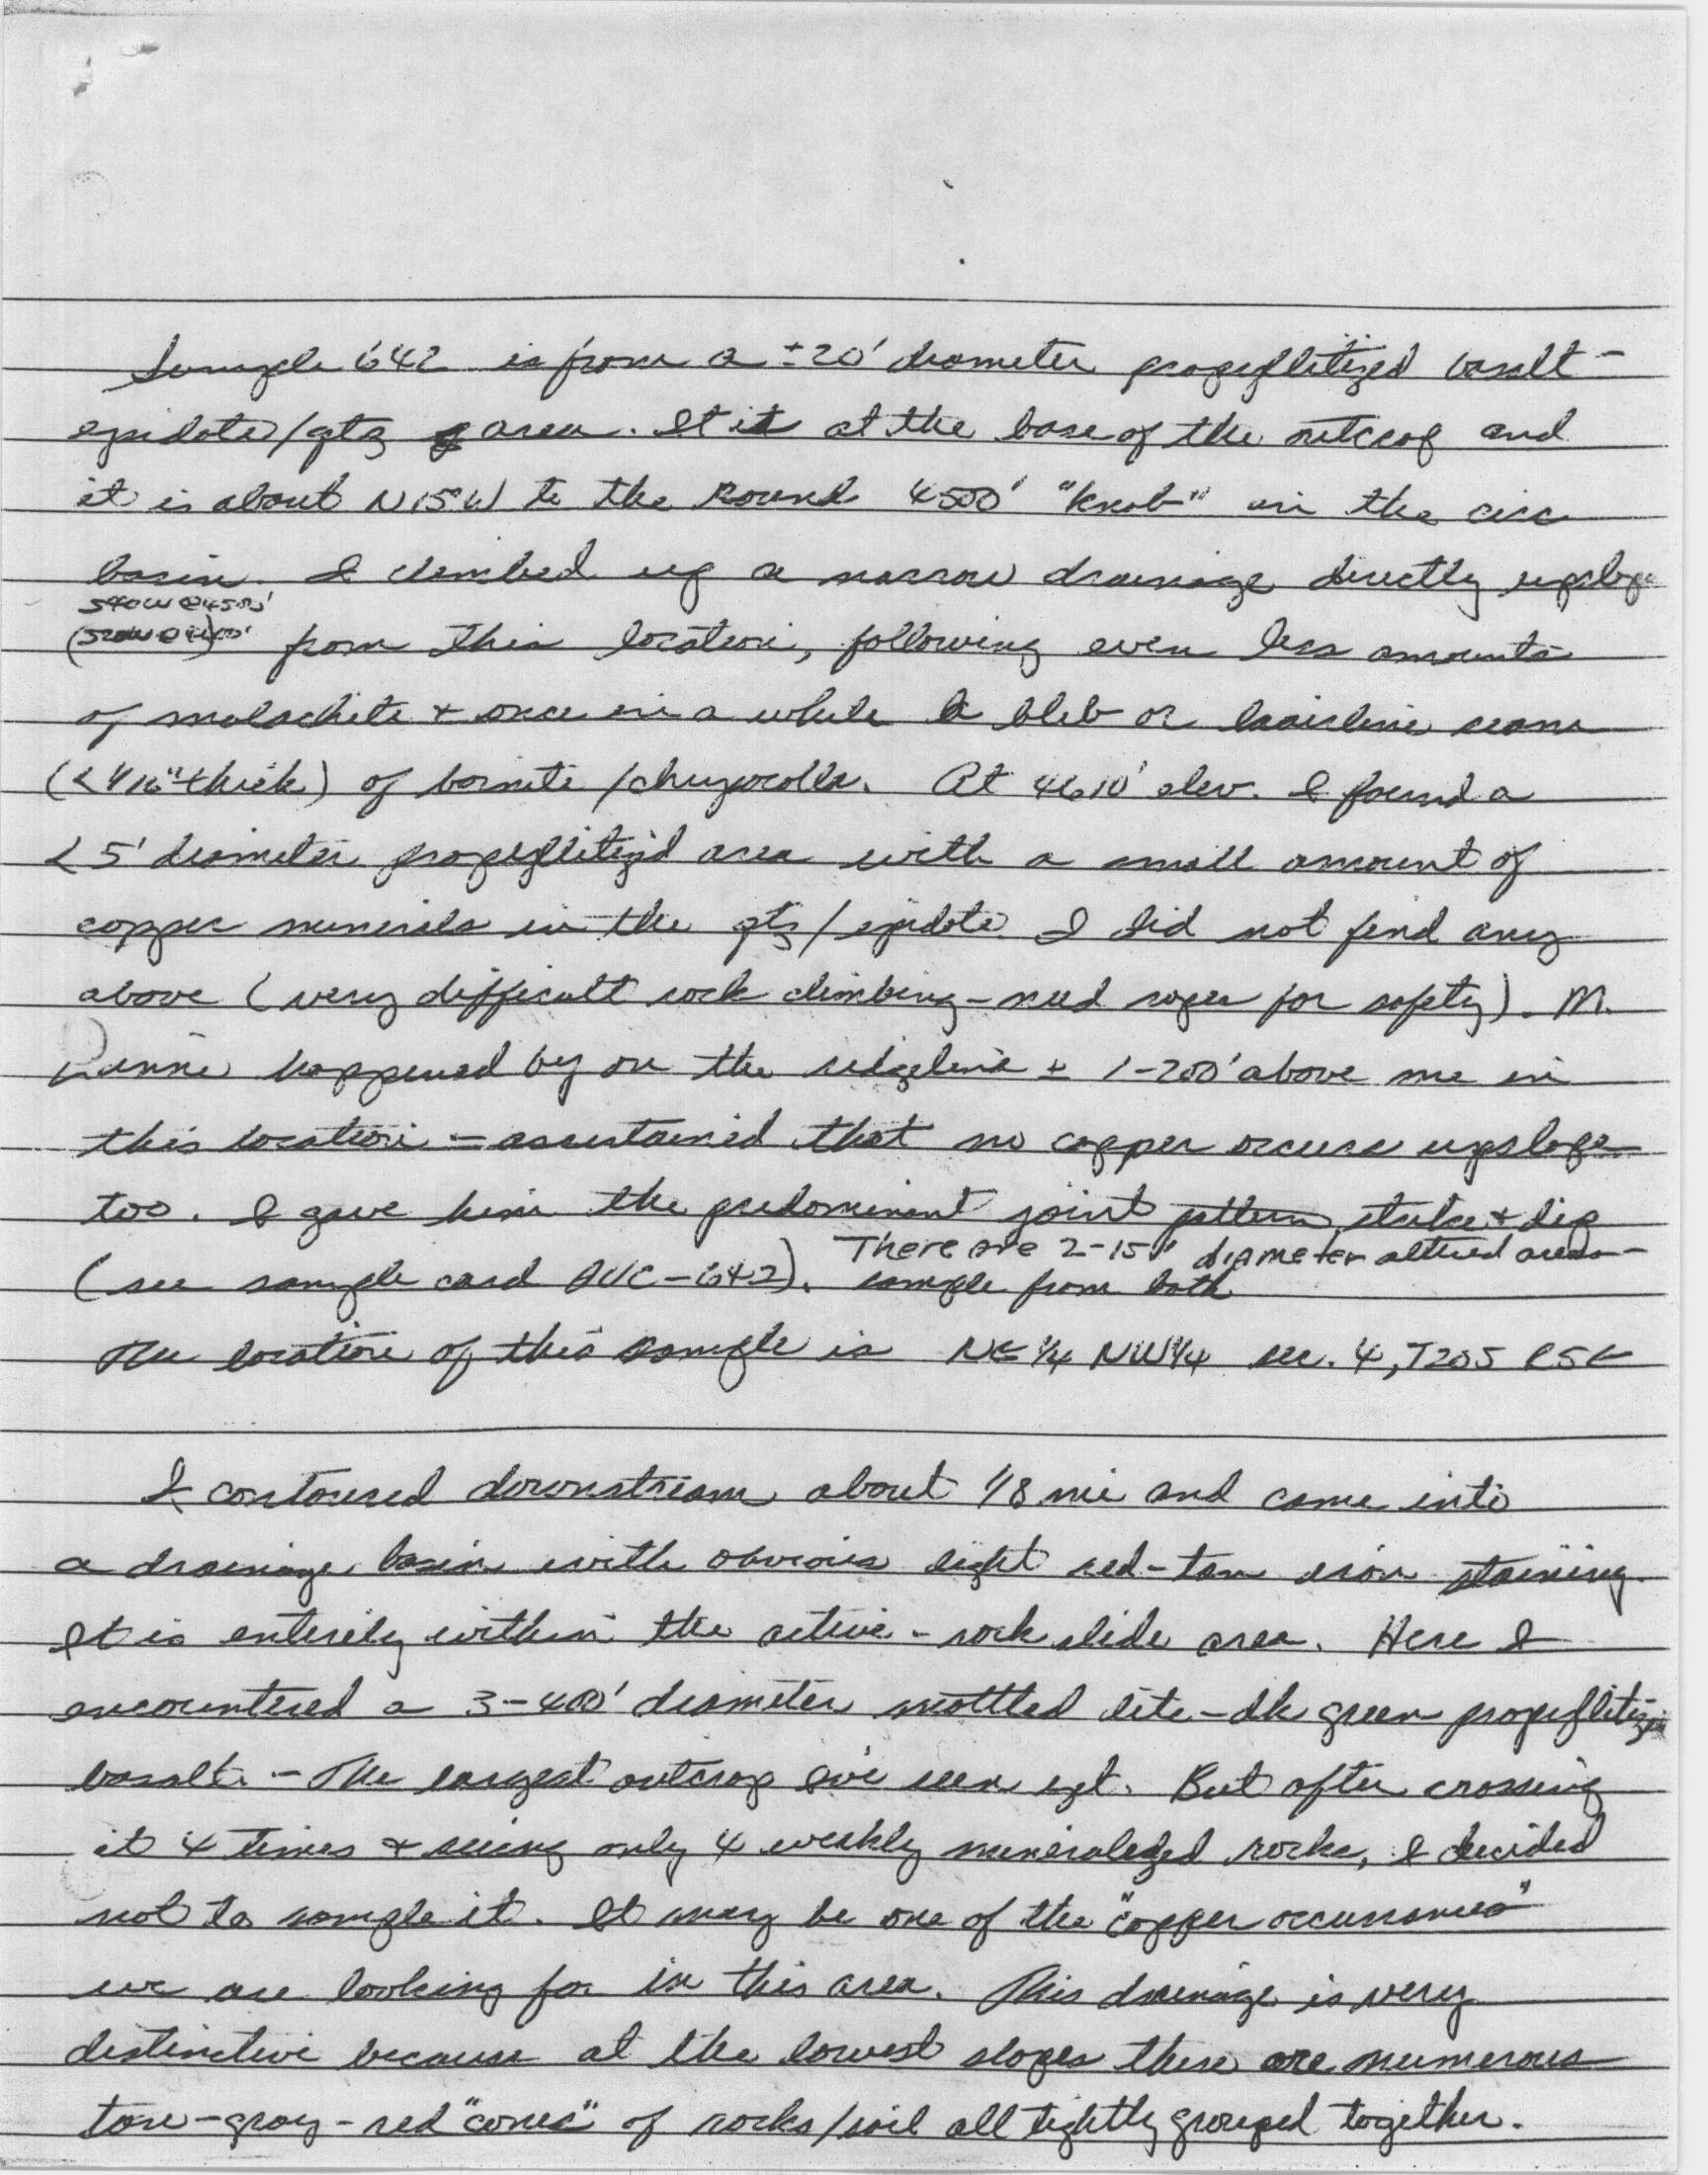 Sample 642 is from a ±20' diameter propyllitized basalt -
epidote/qtz area. It is at the base of the outcrop and
it is about N15W to the Round 4500' "knob" in the circ
basin. I climbed up a narrow drainage directly upslope
S40W@4500'
from this location, following even less amounts
of malachite + once in a while a bleb or hairline seam
(<1/16" thick) of bornite/chrysocolla. At 4610' elev. I found a
<5' diameter propyllitiz'd area with a small amount of
copper minerals in the qtz/epidote. I did not find any
above (very difficult rock climbing - need ropes for safety). M.
happened by on the ridgeline ± 1-200' above me in
this location - ascertained that no copper occurs upslope
too. I gave him the predominant joint pattern, strike + dip
There are 2-15' diameter altered areas -
(see sample card -642). sample from both
The location of this sample is NE 1/4 NW 1/4 sec. 4, T20S R5E
I contoured downstream about 1/8 mi and came into
a drainage basin with obvious light red-tan iron staining.
It is entirely within the active-rock slide area. Here I
encountered a 3-400' diameter mottled lite-dk green propyllitized
basalt. - The largest outcrop I've seen yet. But after crossing
it 4 times + seeing only 4 weakly mineralized rocks, I decided
not to sample it. It may be one of the "copper occurrances"
we are looking for in this area. This drainage is very
distinctive because at the lowest slopes there are numerous
tan-gray-red "cones" of rocks/soil all tightly grouped together.